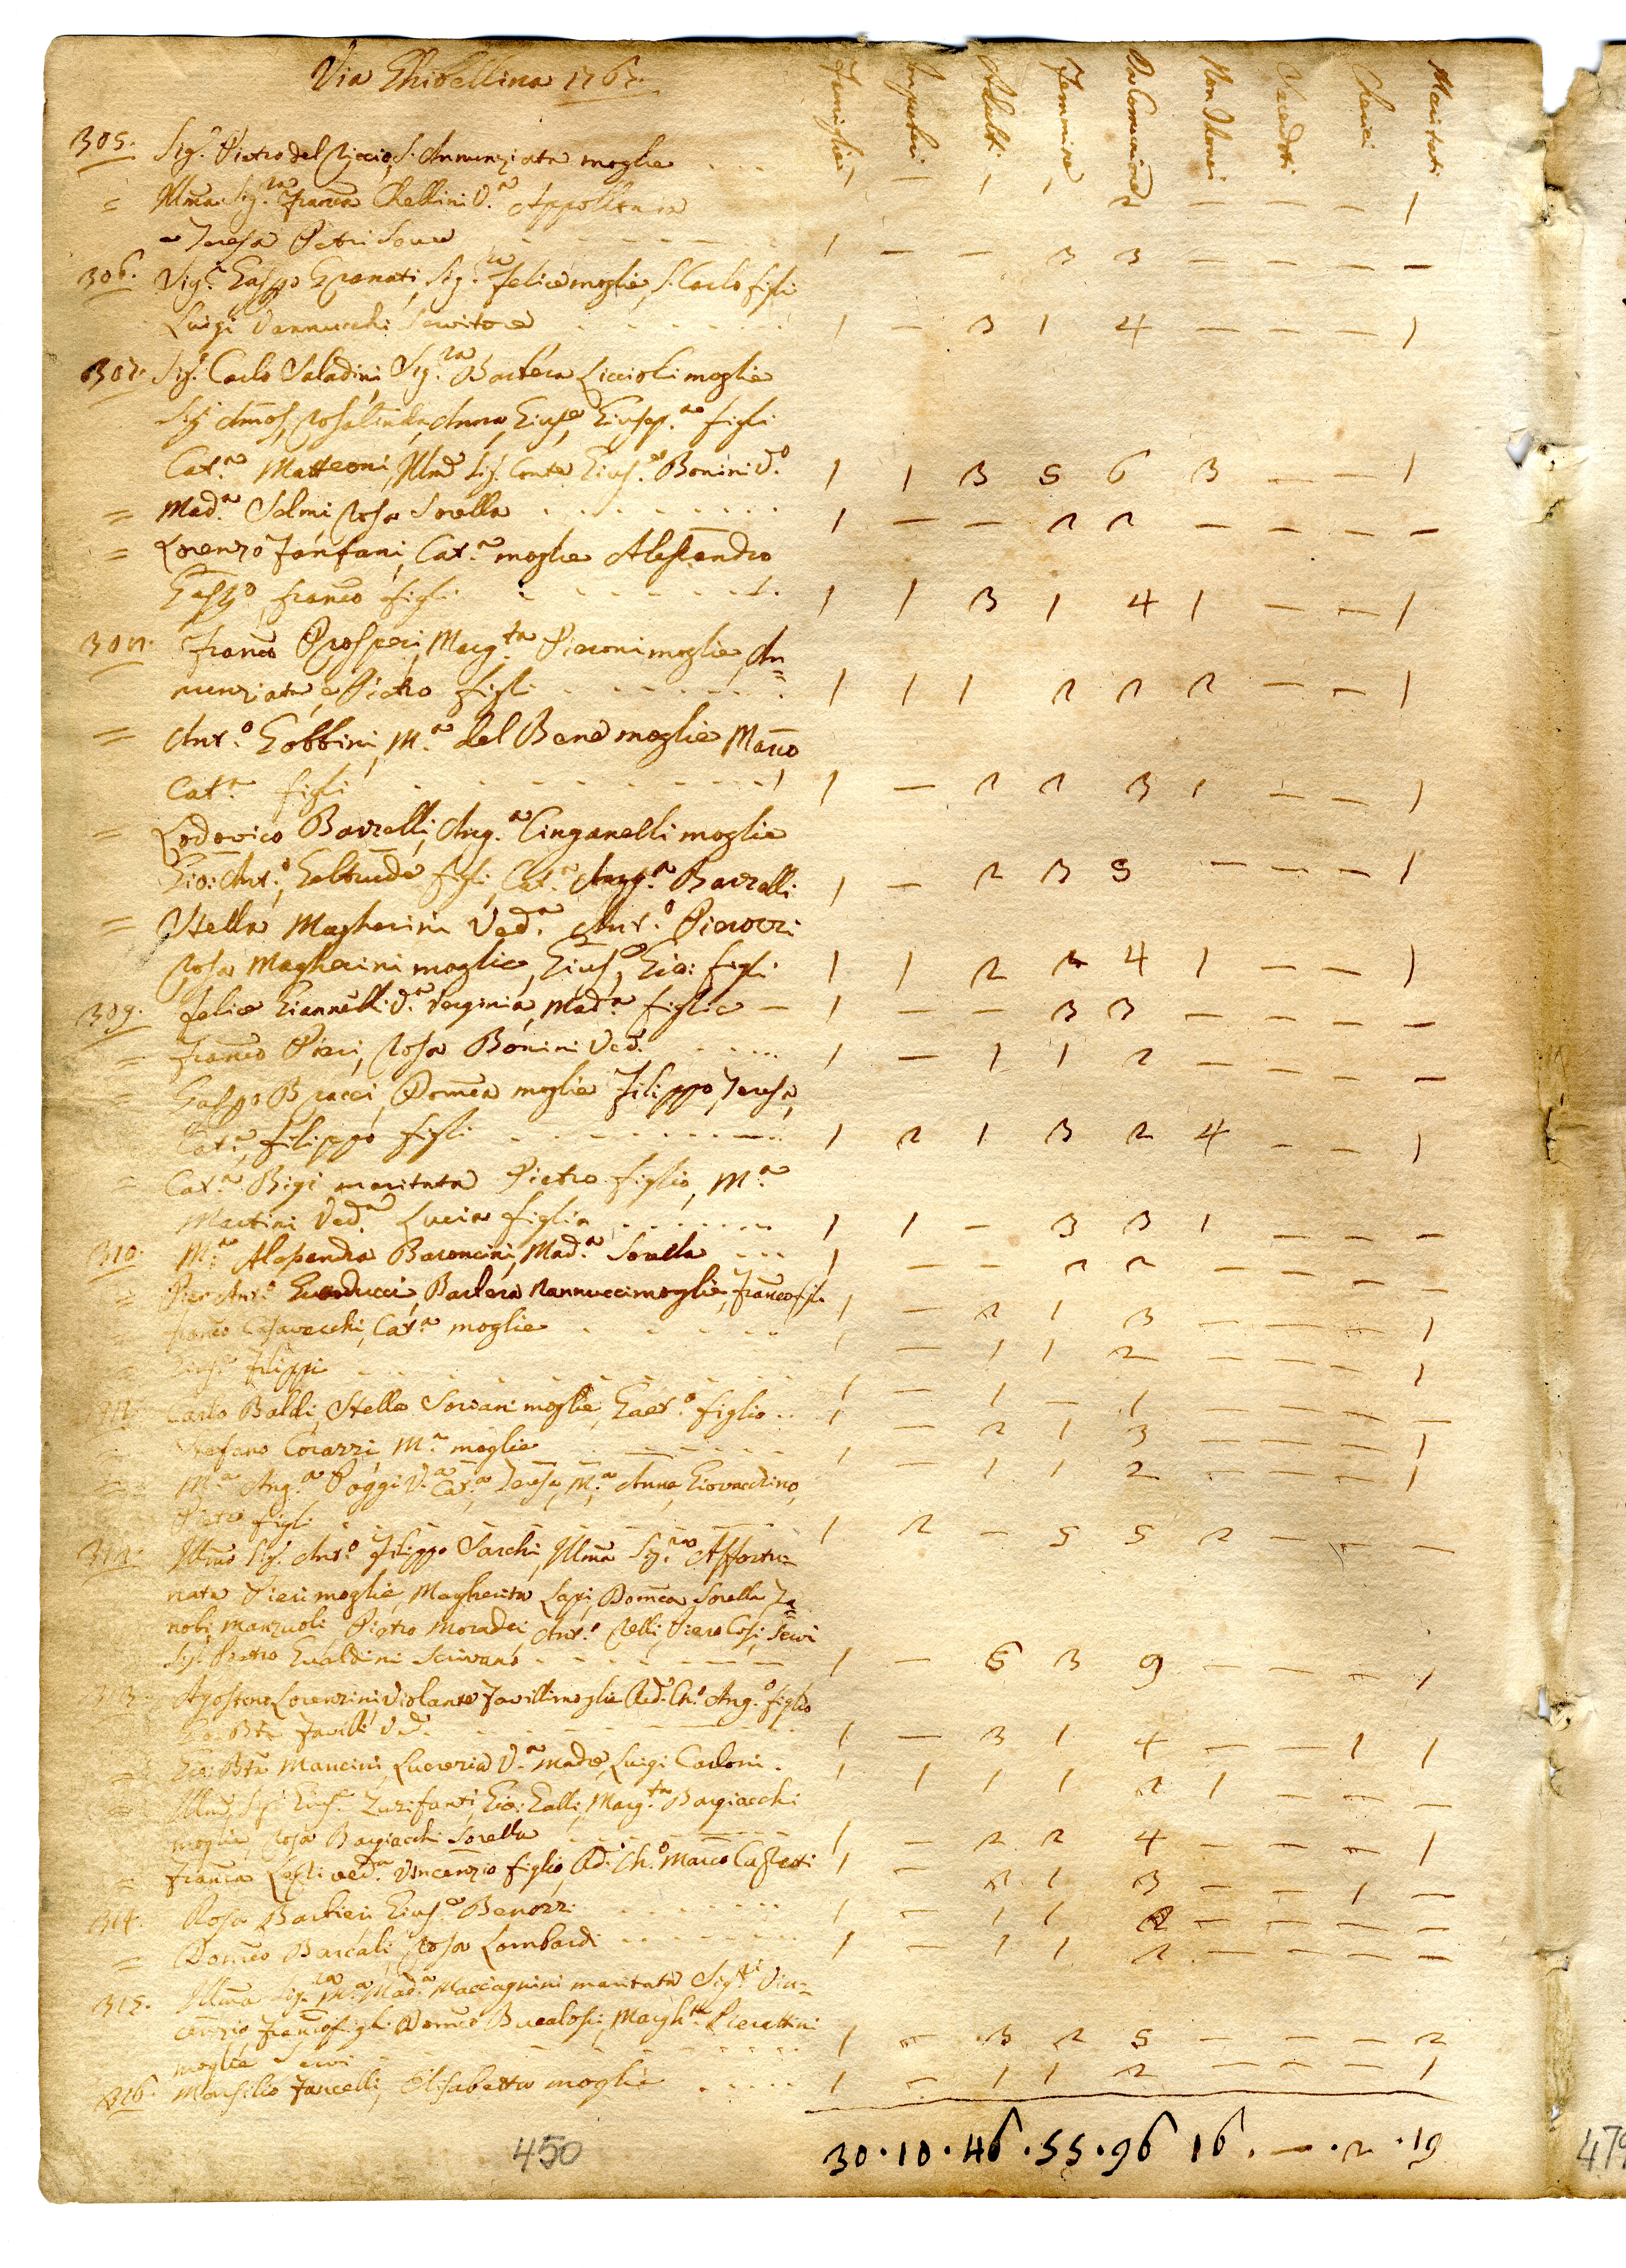 Via Ghibellina 1767.
Famiglie Impuberi Adulti Femmine Da Comunione Non Idonei Sacerdoti Cherici Maritati
305. Sig.r Pietro del Riccio, S. Annunziata moglie . . . 1 — 1 1 2 — — — 1
= Illma Sig.ra Franca Rellini V.a Appollonia
e Teresa Petri Serve - - - - - - - 1 — — 3 3 — — — —
306. Sig.r Gaspo Granati, Sig.ra Felice moglie, S. Carlo figli
Luigi Vannucchi Servitore . - - - - - 1 — 3 1 4 — — — 1
307. Sig. Carlo Saladini, Sig.ra Barbera Liccioli moglie
Sig. Amos, Rosalinda, Anna, Giuse, Giusep.a figli
Cat.a Matteoni, Illmo Sig. Conte Gius.e Bonini V.o 1 1 3 5 6 3 — — 1
= Mad.a Selmi Rosa Sorella . . . . . . . . . 1 — — 2 2 — — — —
= Lorenzo Fanfani, Cat.a moglie Alessandro
Gasp.o franco figli . - - - - - - 1 1 3 1 4 1 — — 1
308. Franco Prosperi, Marg.ta Pieroni moglie, An=
nunziata, e Pietro figli . - - - - - - 1 1 1 2 2 2 — — 1
= Ant.o Gobbini, M.a del Bene moglie Marco
Cat.a figli . - - - - - - - - 1 — 2 2 3 1 — — 1
= Lodovico Barzelli, Ang.a Cinganelli moglie
Gio: Ant.o, Geltrude figli, Cat.a Ang.a Barzelli 1 — 2 3 5 — — — 1
= Stella Magherini Ved.a Ant.o Pierozzi
Rosa Magherini moglie, Gius.e, Gio: figli 1 1 2 2 4 1 — — 1
309. Felice Giannelli V.a Verginia, Mad.a figlie — 1 — — 3 3 — — — —
= Franco Pieri, Rosa Bonini Ved.a . . . . . 1 — 1 1 2 — — — —
= Gaspo Bracci, Domca moglie Filippo, Teresa,
Cat.a, Filippo figli . - - - - - - - 1 2 1 3 2 4 — — 1
= Cat.a Bigi maritata Pietro figlio, M.a
Martini Ved.a Lucia figlia . . . . . . . 1 1 — 3 3 1 — — —
310. M.a Alessandra Baroncini, Mad.a Sorella - - - 1 — — 2 2 — — — —
= Pier Ant.o Guarducci, Barbera Nannucci moglie, Franco fi. 1 — 2 1 3 — — — 1
= franco Casavecchi, Cat.a moglie . - - - - - 1 — 1 1 2 — — — 1
= Gius.e Filippi - - - - - - - - - 1 — 1 — 1 — — — —
311. Carlo Baldi, Stella Sorvani moglie, Gaet.o figlio . . 1 — 2 1 3 — — — 1
= Stefano Corazzi, M.a moglie - - - - - - 1 — 1 1 2 — — — 1
= M.a Ang.a Poggi V.a Cat.a, Teresa, M.a Anna, Giovacchino,
Pietro figli - - - - - - - - - 1 2 — 5 5 2 — — —
312. Illmo Sig. Ant.o Filippo Sarchi, Illma Sig.ra Affortu=
nata Pieri moglie, Magherita Lapi, Domca Sorella Za=
nobi Manzuoli Pietro Moradei, Ant.o Nelli, Piero Cosi, Servi
Sig. Pietro Gualdini Scrivano - - - - - - 1 — 6 3 9 — — — 1
313. Agostono Lorenzini Violante Favilli moglie Red. Ch.o Ang.o figlio
Gio: Bta Favilli Ved.o - - - - - - - 1 — 3 1 4 — — 1 1
= Gio: Bta Mancini, Lucrezia V.a madre, Luigi Carloni. 1 1 1 1 2 1 — — —
= Illmo Sig. Gius.e Zurifanti, Gio: Galli, Marg.ta Bargiacchi
moglie, Rosa Bargiacchi Sorella - - - - - - 1 — 2 2 4 — — — 1
= Franca Lesti ved.a Vincenzio figlio, Rd: Ch.o Marco Castretti 1 — 2 1 3 — — 1 —
314. Rosa Barbieri Gius.e Benozzi . . . . . . . 1 — 1 1 2 — — — —
= Domco Barcali, Rosa Lombardi . . . . . . . 1 — 1 1 2 — — — —
315. Illma Sig.ra M.a Mad.a Maccagnini maritata Sig.ri Vin=
cenzio Franco figli Domco Bucalossi, Margh.ta Pierattini
moglie Servi - - - - - - - - 1 — 3 2 5 — — — 2
316. Monsilio Fancelli, Elisabetta moglie . . . . . 1 — 1 1 2 — — — 1
30 · 10 · 46 · 55 · 96 16 . — · 2 · 19
450
479